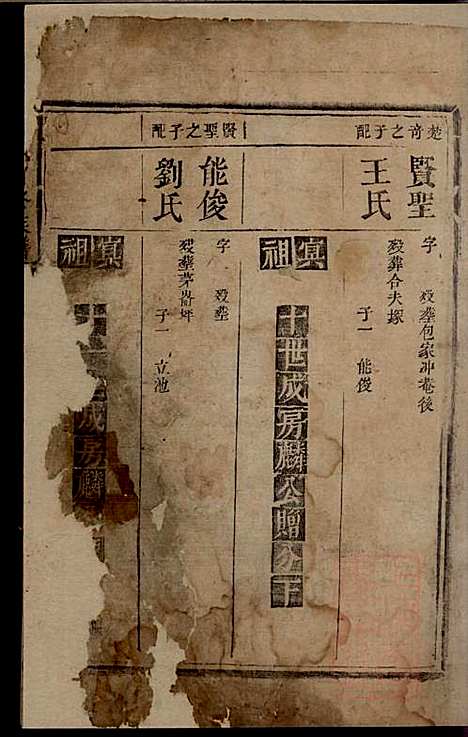 楚奇之子配
賢聖
王氏
字 歿塟包家冲菴後
歿葬合夫塚 子一 能俊
寘祖
十世成房麟公贈公下
賢聖之子配
能俊
劉氏
字 歿塟
歿塟茅嵓坪 子一 立池
寘祖
成房麟